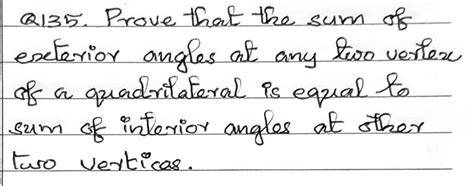 Q135. Prove that the sum of
exterior angles at any two vertex
of a quadrilateral is equal to
sum of interior angles at other
two vertices.